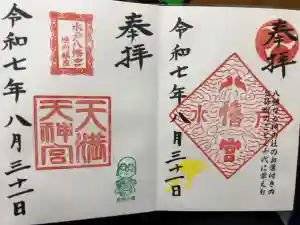 奉拝
八幡宮
水
令和七年八月三十一日
奉拝
水戸八幡宮
天満
天神宮
令和七年八月三十一日